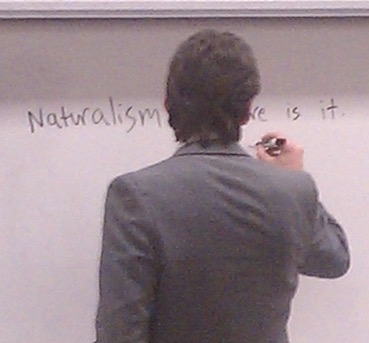 Naturalism is it.